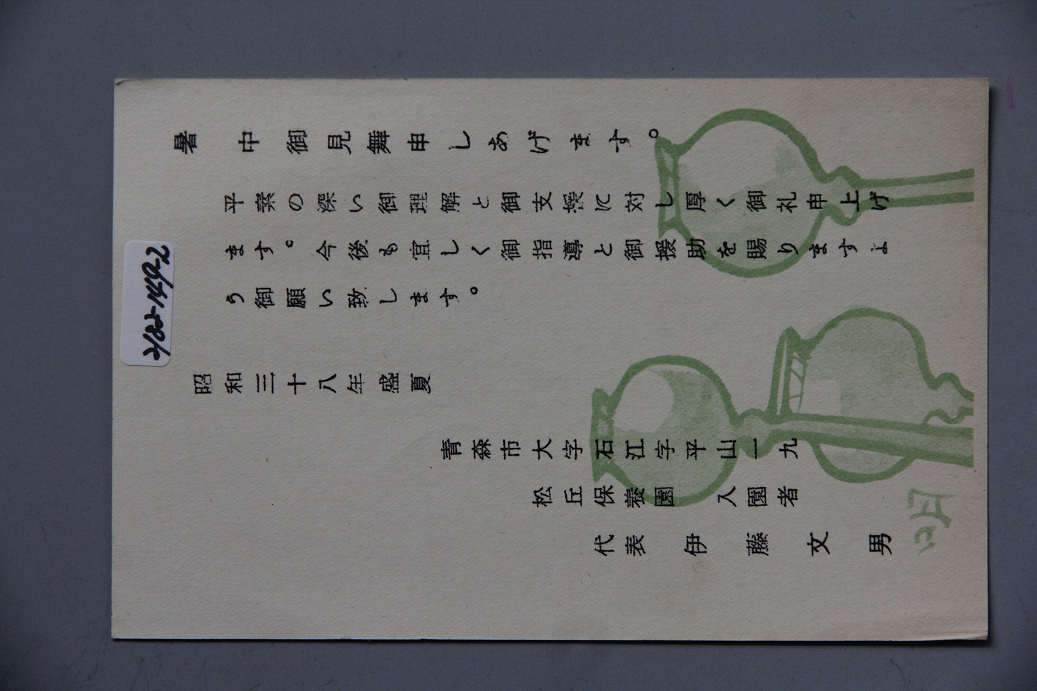 暑中御見舞申しあげます。
平素の深い御理解と御支援に対し厚く御礼申上げ
ます。今後も宜しく御指導と御援助を賜りますよ
う御願い致します。
昭和三十八年盛夏
青森市大字石江字平山一九
松丘保養園 入園者
代表 伊藤文男